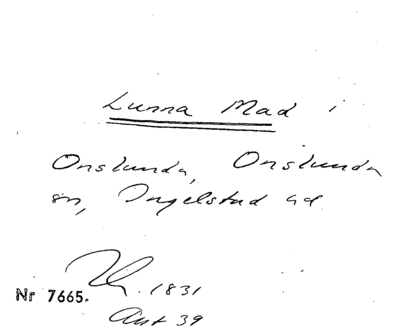 Lunna Mad i
Onslunda, Onslunda
sn, Ingelstad hd
1831
Nr 7665.
Ant 39